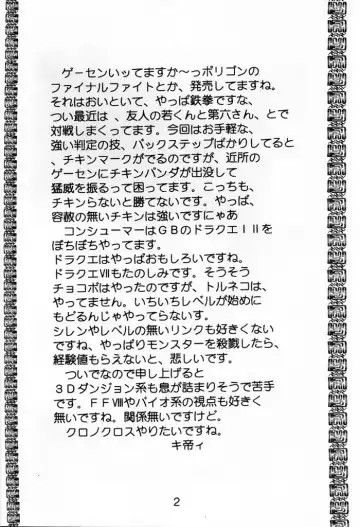 ゲーセンいッてますか～っポリゴンの
ファイナルファイトとか、発売してますね。
それはおいといて、やっぱ鉄拳ですな、
つい最近は、友人の若くんと第六さん、とで
対戦しまくってます。今回はお手軽な、
強い判定の技、バックステップばかりしてると
、チキンマークがでるのですが、近所の
ゲーセンにチキンパンダが出没して
猛威を振るって困ってます。こっちも、
チキンらないと勝てないです。やっぱ、
容赦の無いチキンは強いですにゃあ
コンシューマーはＧＢのドラクエＩＩを
ぼちぼちやってます。
ドラクエはやっぱおもしろいですね。
ドラクエⅦもたのしみです。そうそう
チョコボはやったのですが、トルネコは、
やってません。いちいちレベルが始めに
もどるんじゃやってらないす。
シレンやレベルの無いリンクも好きくない
ですね、やっぱりモンスターを殺戮したら、
経験値もらえないと、悲しいです。
ついでなので申し上げると
３Ｄダンジョン系も息が詰まりそうで苦手
です。ＦＦⅧやバイオ系の視点も好きく
無いですね。関係無いですけど。
クロノクロスやりたいですね。
キ帝ィ
2